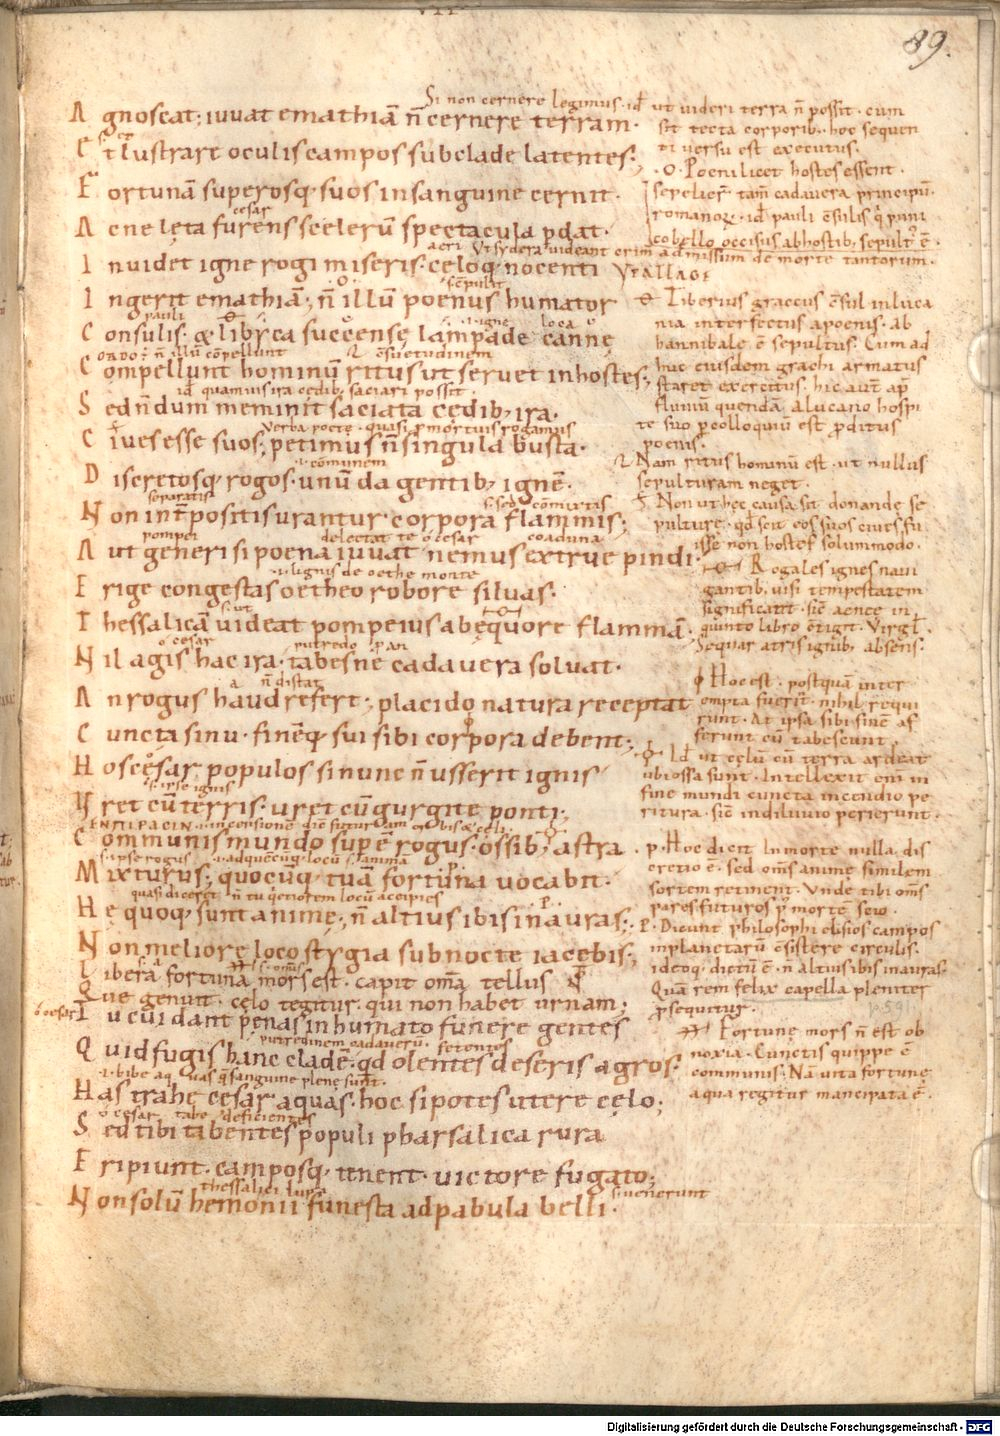 VII
89.
Si non cernere legimus · id
A gnoscat; iuuat emathiā n̄ cernere terram·
E t lustrare oculis campos sub clade latentes;
F ortunā superosq; suos in sanguine cernit·
cesar
A c ne lęta furens scelerū spectacula p̄dat·
aeri Vt sydera uideant crim̄
I nuidet igne rogi miseris· cęloq; nocenti
sepuluit
I ngerit emathiā; n̄ illū poenus humator
pauli · i· igne loca
C onsulis· & libyca succensę lampade cannę
ordo ÷ n̄ illū cōpellunt cōsuetudinem
C ompellunt hominū ritus ut seruet in hostes;
id quamuis ira cędib; saciari possit
S ed n̄dum meminit saciata cędib; ira·
Verba poetę· quasi p mortuis rogamus
C iues esse suos; petimus n̄ singula busta·
·i· cōmunem
D iscretosq; rogos· unū da gentib; ignē·
separatis s· sed cōmixtis
N on int̄positis urantur corpora flammis;
pompei delectat te o cesar coaduna
A ut generi si poena iuuat nemus extrue pindi·
·i· lignis de oethe monte
E rige congestas oetheo robore siluas·
s· ut
T hessalicā uideat pompeius ab ęquore flammā·
o cesar putredo
N il agis hac ira· tabesne cadauera soluat·
n̄ distat
A n rogus haud refert; placido natura receptat
C uncta sinu· finēq; sui sibi corpora debent;
H os cęsar populos si nunc n̄ usserit ignis
s· ipse ignis
V ret cū terris· uret cū gurgite ponti;
C ommunis mundo supē rogus· ossib; astra
s· ipse rogus · i· ad quēcūq; locū s· animā
M ixturus; quocūq; tuā fortuna uocabit·
quasi diceret n̄ tu q̄tiorem locū accipies
H ę quoq; sunt animę; n̄ altius ibis in auras;
N on meliore loco stygia sub nocte iacebis;
s· omīs
L ibera fortunā mors est· capit omā tellus
Q ue genuit· cęlo tegitur· qui non habet urnam;
o cesar T u cui dant pęnas inhumato funere gentes
putredinem cadauerū· fetentes
Q uid fugis hanc cladē· qd olentes deseris agros·
·i· bibe aquas q̄ sanguine plene sunt·
H as trahe cesar aquas· hoc si potes utere cęlo;
o cesar tabe deficientes
S ed tibi tabentes populi pharsalica rura
E ripiunt· camposq; tenent· uictore fugato;
thessalici lupi s· uenerunt
N on solū hemonii funesta ad pabula belli·
ut uideri terra n̄ possit· cum
sit tecta corporib;· hoc sequen
ti uersu est executus·
·o· Poeni licet hostes essent
sepelier̄ tam̄ cadauera principū·
romanor̄· id pauli cōsulis q̄ puni
co bello occisus ab hostib; sepult; ē·
admissum de morte tantorum·
Tiberius graccus cōsul in luca
nia interfectus a poenis· ab
hannibale ē sepultus· Cum ad
huc eiusdem grachi armatus
staret exercitus· hic aut̄ ap̄
flumū quendā a lucano hospi
te suo p colloquiū est p̄ditus
poenis·
Nam ritus hominū est· ut nullus
sepulturam neget·
Non ut hęc causa sit donande se
pulture· qd scit eos suos ciues fu
isse non hostes solummodo·
Rogales ignes naui
gantib; uisi tempestatem
significant· sic̄ aenee in
quinto libro cōtigit· Virgl̄·
Sequar atris ignib; absens·
Hoc est· postquā inter
empta fuerit· nihil requi
runt· At ipsa sibi finē af
ferunt cū tabescunt·
Id ut cęlū cū terra ardeat
ubi ossa sunt· Intellexit em̄ in
fine mundi cuncta incendio pe
ritura· sic̄ in diluuio perierunt·
p· Hoc dicit In morte nulla dis
cretio ē· sed oms̄ animę similem
sortem retinent· Vnde tibi oms̄
pares futuros p mortē scio·
P· Dicunt philosophi elisios campos
in planetarū cōsistere circulis·
ideoq; dictū ē· n̄ altius ibis in auras·
Quā rem felix capella pleniter
p̄sequitur·
Fortunę mors n̄ est ob
noxia· Cunctis quippe ē
communis· Nā uita fortunę
a qua regitur mancipata ē·
Digitalisierung gefördert durch die Deutsche Forschungsgemeinschaft - DFG